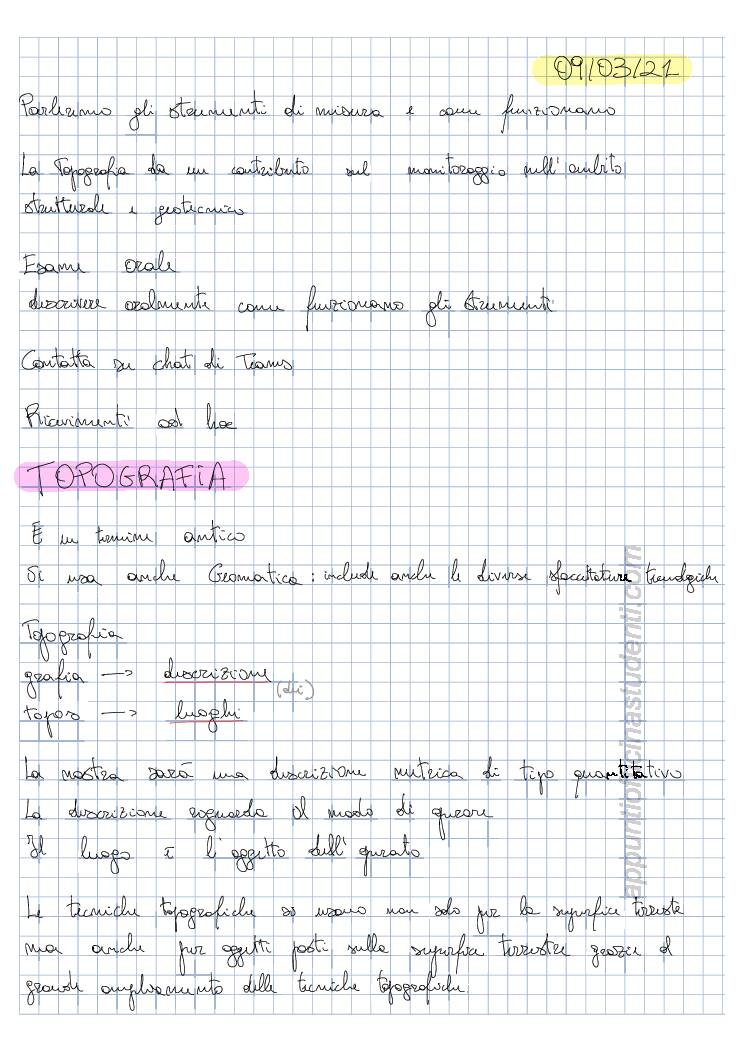 09/03/21
Parleremo gli strumenti di misura e come funzionano
La Topografia da un contributo sul monitoraggio nell'ambito
strutturale e geotecnico
Esame orale
descrivere oralmente come funzionano gli strumenti
Contatta su chat di Teams
Ricevimenti ad hoc
TOPOGRAFIA
È un termine antico
Si usa anche Geomatica: include anche le diverse sfaccettature tecnologiche
Topografia
grafia --> descrizione
(di)
topos --> luoghi
La nostra sarà una descrizione metrica di tipo quantitativo
La descrizione riguarda il modo di operare
Il luogo è l'oggetto dell'operato
Le tecniche topografiche si usano non solo per la superficie terrestre
ma anche per oggetti posti sulla superficie terrestre grazie al
grande ampliamento delle tecniche topografiche.
appuntiofficinastudenti.com